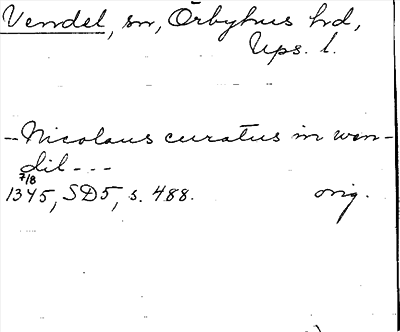 Vendel, sn, Örbyhus hd,
Ups. l.
- Nicolaus curatus in wen-
dil - - -
7/8
1345, SD5, s. 488. orig.